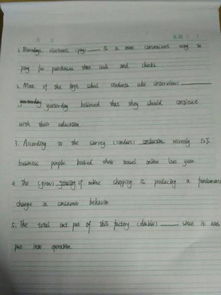 1. Nowadays electronic (pay) ____ is a more convenient way to
pay for purchases than cash and checks.
2. Most of the high school students who interviewed ____
yesterday believed that they should continue
with their education.
3. According to the survey (conduct) conducted recently, 52%
business people booked their travel online last year.
4. The (grow) growing of online shopping is producing a fundamental
change in consumer behavior.
5. The total out put of this factory (double) ____ when it was
put into operation.